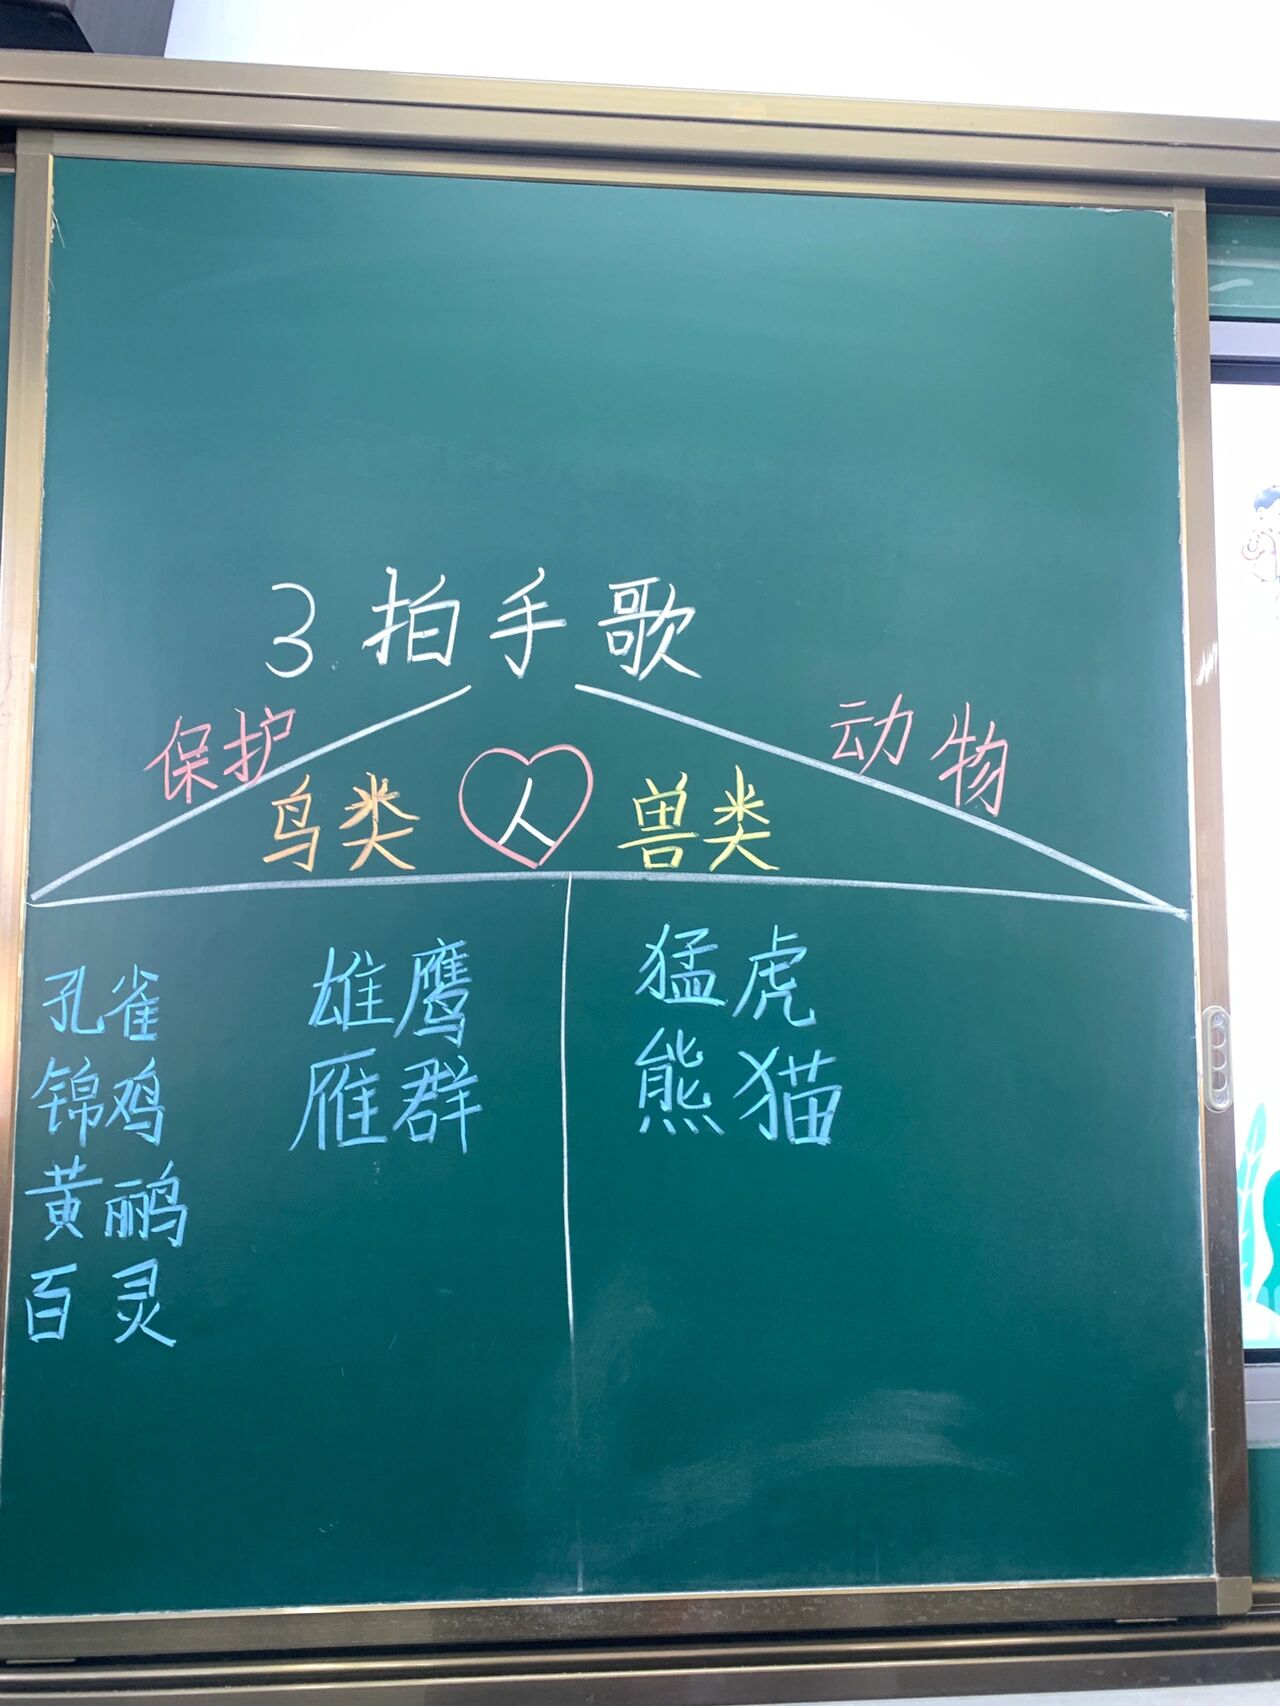 3.拍手歌
保护 动物
鸟类 人 兽类
孔雀 雄鹰 猛虎
锦鸡 雁群 熊猫
黄鹂
百灵